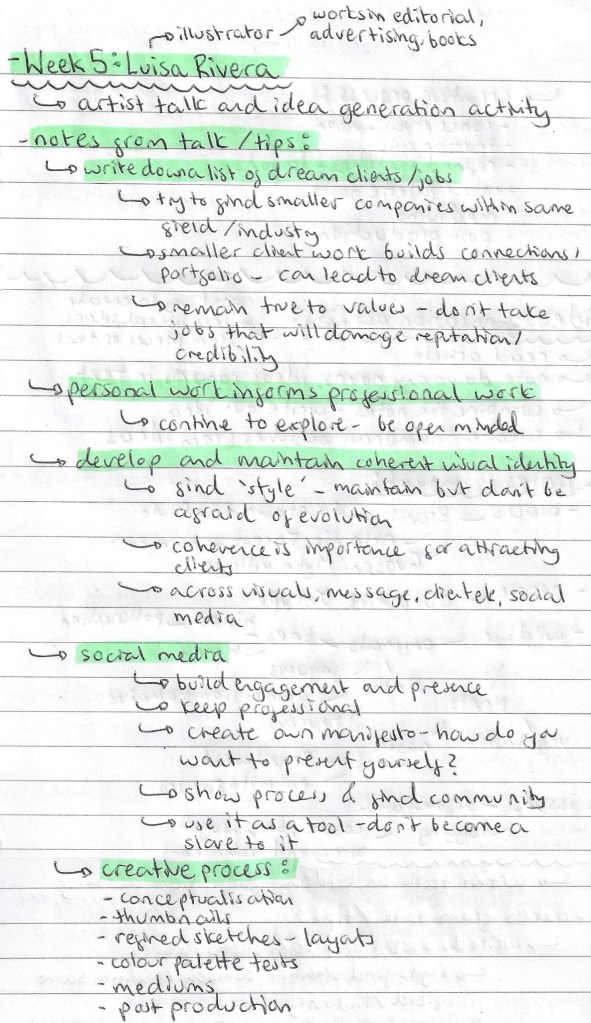 → illustrator → works in editorial,
advertising, books
- Week 5: Luisa Rivera
↳ artist talk and idea generation activity
- notes from talk / tips:
↳ write down a list of dream clients / jobs
↳ try to find smaller companies within same
field / industry
↳ smaller client work builds connections /
portfolio - can lead to dream clients
↳ remain true to values - don't take
jobs that will damage reputation /
credibility
↳ personal work informs professional work
↳ contine to explore - be open minded
↳ develop and maintain coherent visual identity
↳ find 'style' - maintain but don't be
afraid of evolution
↳ coherence is importance for attracting
clients
↳ across visuals, message, clientek, social
media
↳ social media
↳ build engagement and presence
↳ keep professional
↳ create own manifesto - how do you
want to present yourself?
↳ show process & find community
↳ use it as a tool - don't become a
slave to it
↳ creative process:
- conceptualisation
- thumbnails
- refined sketches - layouts
- colour palette tests
- mediums
- post production